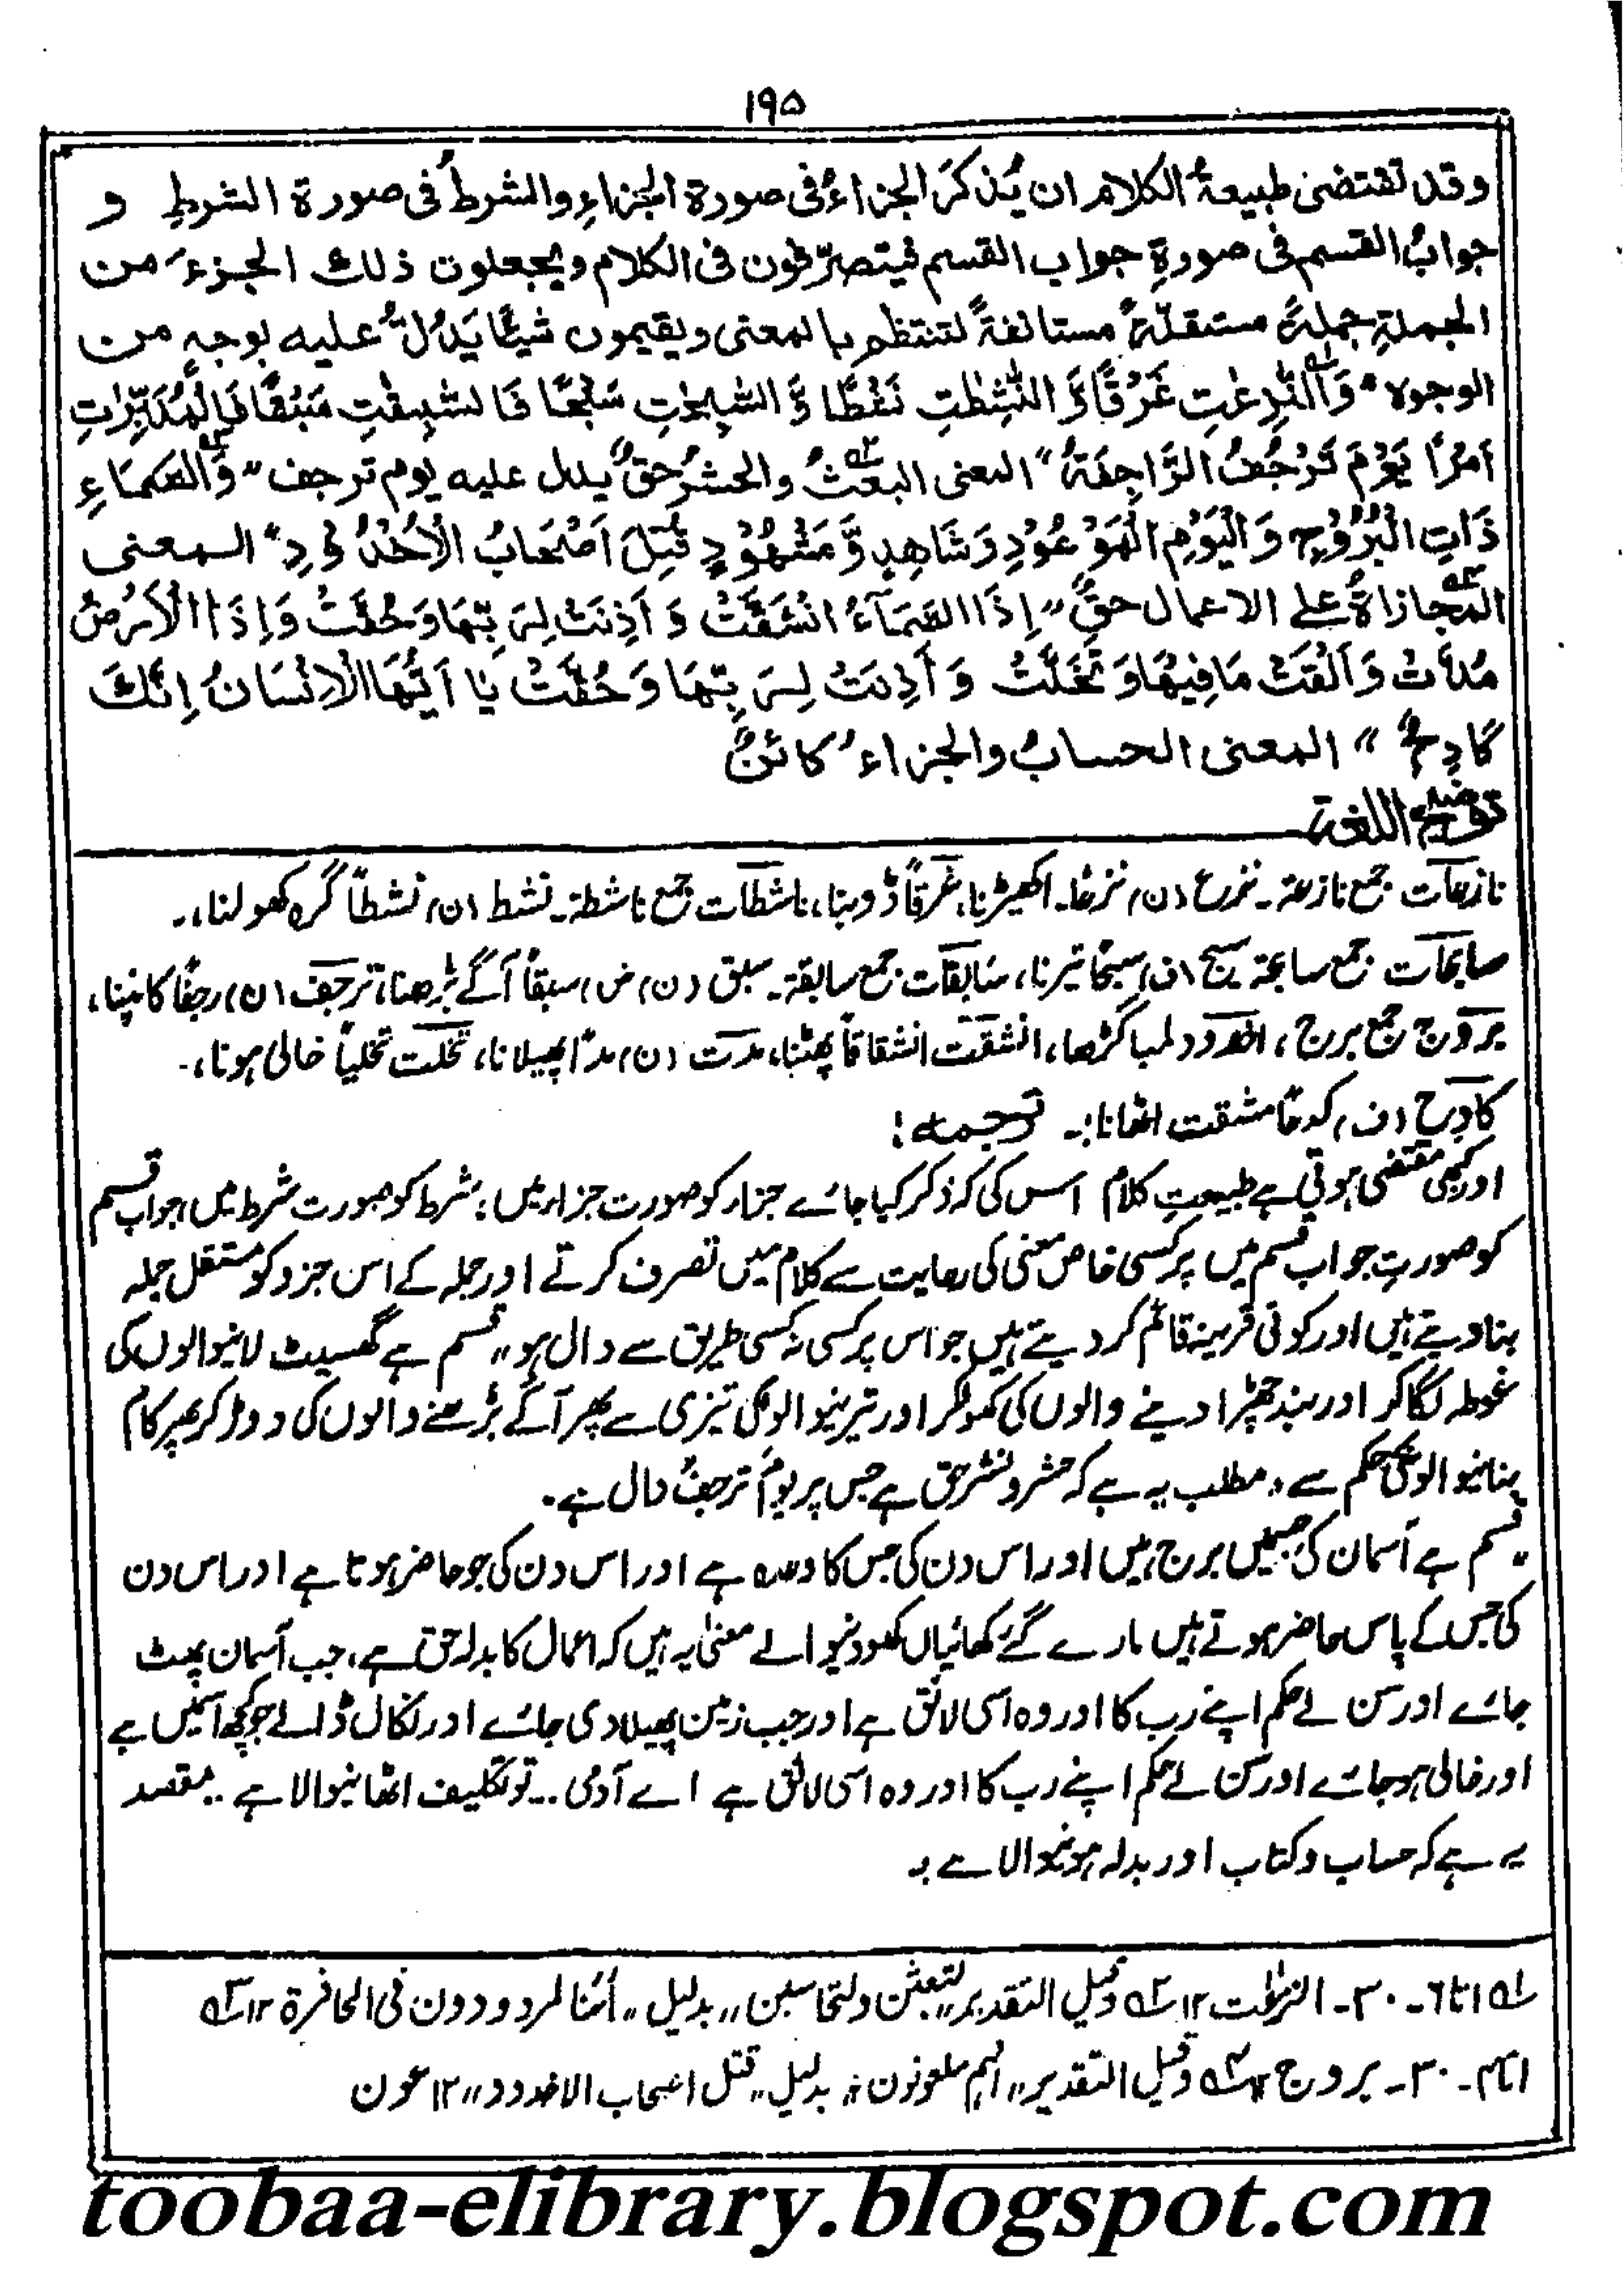 ۱۹۵
وقد تقتضی طبیعةُ الکلام ان یُذکرَ الجزاءُ فی صورة الجزاءِ والشرطُ فی صورة الشرطِ و
جوابُ القسم فی صورةِ جواب القسم فیتصرّفون فی الکلام ویجعلون ذلك الجزءَ من
الجملةِ جملةً مستقلّةً مستانفةً لتنتظم بالمعنی ویقیمون شیئًا یَدُلُّ علیه بوجهٍ من
الوجوه "وَالنّٰزِعٰتِ غَرْقًا وَّ النّٰشِطٰتِ نَشْطًا وَّ السّٰبِحٰتِ سَبْحًا فَالسّٰبِقٰتِ سَبْقًا فَالْمُدَبِّرٰتِ
اَمْرًا یَوْمَ تَرْجُفُ الرَّاجِفَةُ" المعنی البعثُ والحشرُ حقٌّ یدل علیه یوم ترجف "وَالسَّمَاءِ
ذَاتِ الْبُرُوْجِ وَالْیَوْمِ الْمَوْعُوْدِ وَشَاهِدٍ وَّمَشْهُوْدٍ قُتِلَ اَصْحَابُ الْاُخْدُوْدِ" المعنی
المجازاةُ علی الاعمال حقٌّ "اِذَا السَّمَآءُ انْشَقَّتْ وَ اَذِنَتْ لِرَبِّهَا وَحُقَّتْ وَاِذَا الْاَرْضُ
مُدَّتْ وَاَلْقَتْ مَا فِیْهَا وَ تَخَلَّتْ وَ اَذِنَتْ لِرَبِّهَا وَحُقَّتْ یَا اَیُّهَا الْاِنْسَانُ اِنَّكَ
کَادِحٌ" المعنی الحسابُ والجزاءُ کائنٌ
توضیح اللغة
نازعات جمع نازعة۔ نزع (ن) نزعًا۔ اکھیڑنا، غرقاً ڈوبنا، ناشطات جمع ناشطة۔ نشط (ن) نشطاً گرہ کھولنا،۔
سابحات جمع سابحة سبح (ف) سبحًا تیرنا، سابقات جمع سابقة۔ سبق (ن، ض) سبقاً آگے بڑھنا، ترجف (ن) رجفًا کانپنا،
بروج جمع برج، اخدود لمبا گڑھا، انشقت انشقاقاً پھٹنا، مدت (ن) مدًا پھیلانا، تخلت تخلیاً خالی ہونا،۔
کادح (ف) کدحًا مشقت اٹھانا:۔ ترجمہ:
اور کبھی مقتضی ہوتی ہے طبیعتِ کلام اس کی کہ ذکر کیا جائے جزاء کو صورت جزاء میں، شرط کو صورت شرط میں، جواب قسم
کو صورتِ جواب قسم میں پر کسی خاص معنی کی رعایت سے کلام میں تصرف کرتے اور جملہ کے اس جزو کو مستقل جملہ
بنا دیتے ہیں اور کوئی قرینہ قائم کر دیتے ہیں جو اس پر کسی نہ کسی طریق سے دال ہو "قسم ہے گھسیٹ لانیوالوں کی
غوطہ لگا کر اور بند چھڑا دینے والوں کی کھولکر اور تیرنیوالوں کی تیزی سے پھر آگے بڑھنے والوں کی دوڑ کر پھر کام
بنانیوالوں کی حکم سے، مطلب یہ ہے کہ حشر و نشر حق ہے جس پر یومَ ترجفُ دال ہے۔
"قسم ہے آسمان کی جسمیں برج ہیں اور اس دن کی جس کا وعدہ ہے اور اس دن کی جو حاضر ہوتا ہے اور اس دن
کی جس کے پاس حاضر ہوتے ہیں مارے گئے کھائیاں کھودنیوالے معنیٰ یہ ہیں کہ اعمال کا بدلہ حق ہے، جب آسمان پھٹ
جائے اور سن لے حکم اپنے رب کا اور وہ اسی لائق ہے اور جب زمین پھیلا دی جائے اور نکال ڈالے جو کچھ اسمیں ہے
اور خالی ہو جائے اور سن لے حکم اپنے رب کا اور وہ اسی لائق ہے اے آدمی۔۔ تو تکلیف اٹھانیوالا ہے۔۔ مقصد
یہ ہے کہ حساب و کتاب اور بدلہ ہونیوالا ہے:۔
لہ ۱ تا ۶۔ ۳۰۔ النزعٰت ۱۲ ۲ہ وقیل التقدیر "لتبعثن ولتحاسبن" بدلیل "أئنا لمردودون فی الحافرة ۱۲ ۳ہ
۱ تا ۴۔ ۳۰۔ بروج ۱۲ ۴ہ وقیل التقدیر "انہم ملعونون" بدلیل "قتل اصحاب الاخدود" ۱۲ عون
toobaa-elibrary.blogspot.com